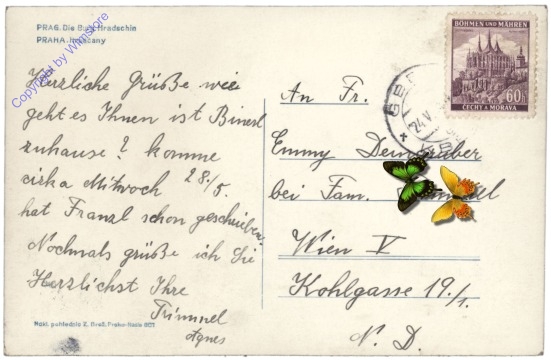 PRAG. Die Burg Hradschin
PRAHA. Hradčany
Copyright by Winistore
Herzliche Grüße wie
geht es Ihnen ist Binerl
zuhause? komme
zirka Mittwoch 28./5.
hat Franzl schon geschrieben.
Nochmals grüße ich Sie
Herzlichst Ihre
Trimmel
Agnes
BÖHMEN UND MÄHREN
60
ČECHY A MORAVA
24.V
An Fr.
Emmy
bei Fam.
Wien V
Kohlgasse 19/1.
N. D.